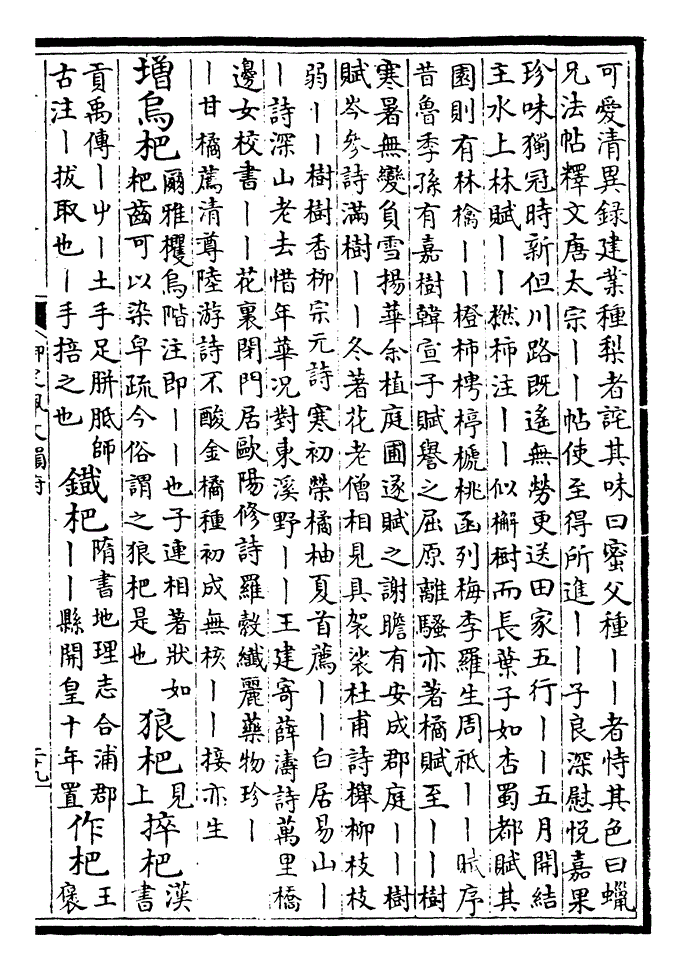 可愛清異録建業種梨者詫其味曰蜜父種丨丨者恃其色曰蠟
兄法帖釋文唐太宗丨丨帖使至得所進丨丨子良深慰悦嘉果
珍味獨冠時新但川路既遙無勞更送田家五行丨丨五月開結
主水上林賦丨丨橪柿注丨丨似檞樹而長葉子如杏蜀都賦其
園則有林檎丨丨橙柿梬楟榹桃函列梅李羅生周祗丨丨賦序
昔魯季孫有嘉樹韓宣子賦譽之屈原離騷亦著橘賦至丨丨樹
寒暑無變負雪揚華余植庭圃遂賦之謝瞻有安成郡庭丨丨樹
賦岑參詩滿樹丨丨冬著花老僧相見具袈裟杜甫詩櫸柳枝枝
弱丨丨樹樹香柳宗元詩寒初榮橘柚夏首薦丨丨白居易山丨
丨詩深山老去惜年華况對東溪野丨丨王建寄薛濤詩萬里橋
邊女校書丨丨花裏閉門居歐陽修詩羅縠纖麗藥物珍丨
丨甘橘薦清尊陸游詩不酸金橘種初成無核丨丨接亦生
增烏杷爾雅欔烏階注即丨丨也子連相著狀如
杷齒可以染皁疏今俗謂之狼杷是也狼杷見
上捽杷漢書
貢禹傳丨屮丨土手足胼胝師
古注丨拔取也丨手掊之也鐵杷隋書地理志合浦郡
丨丨縣開皇十年置作杷王
褒